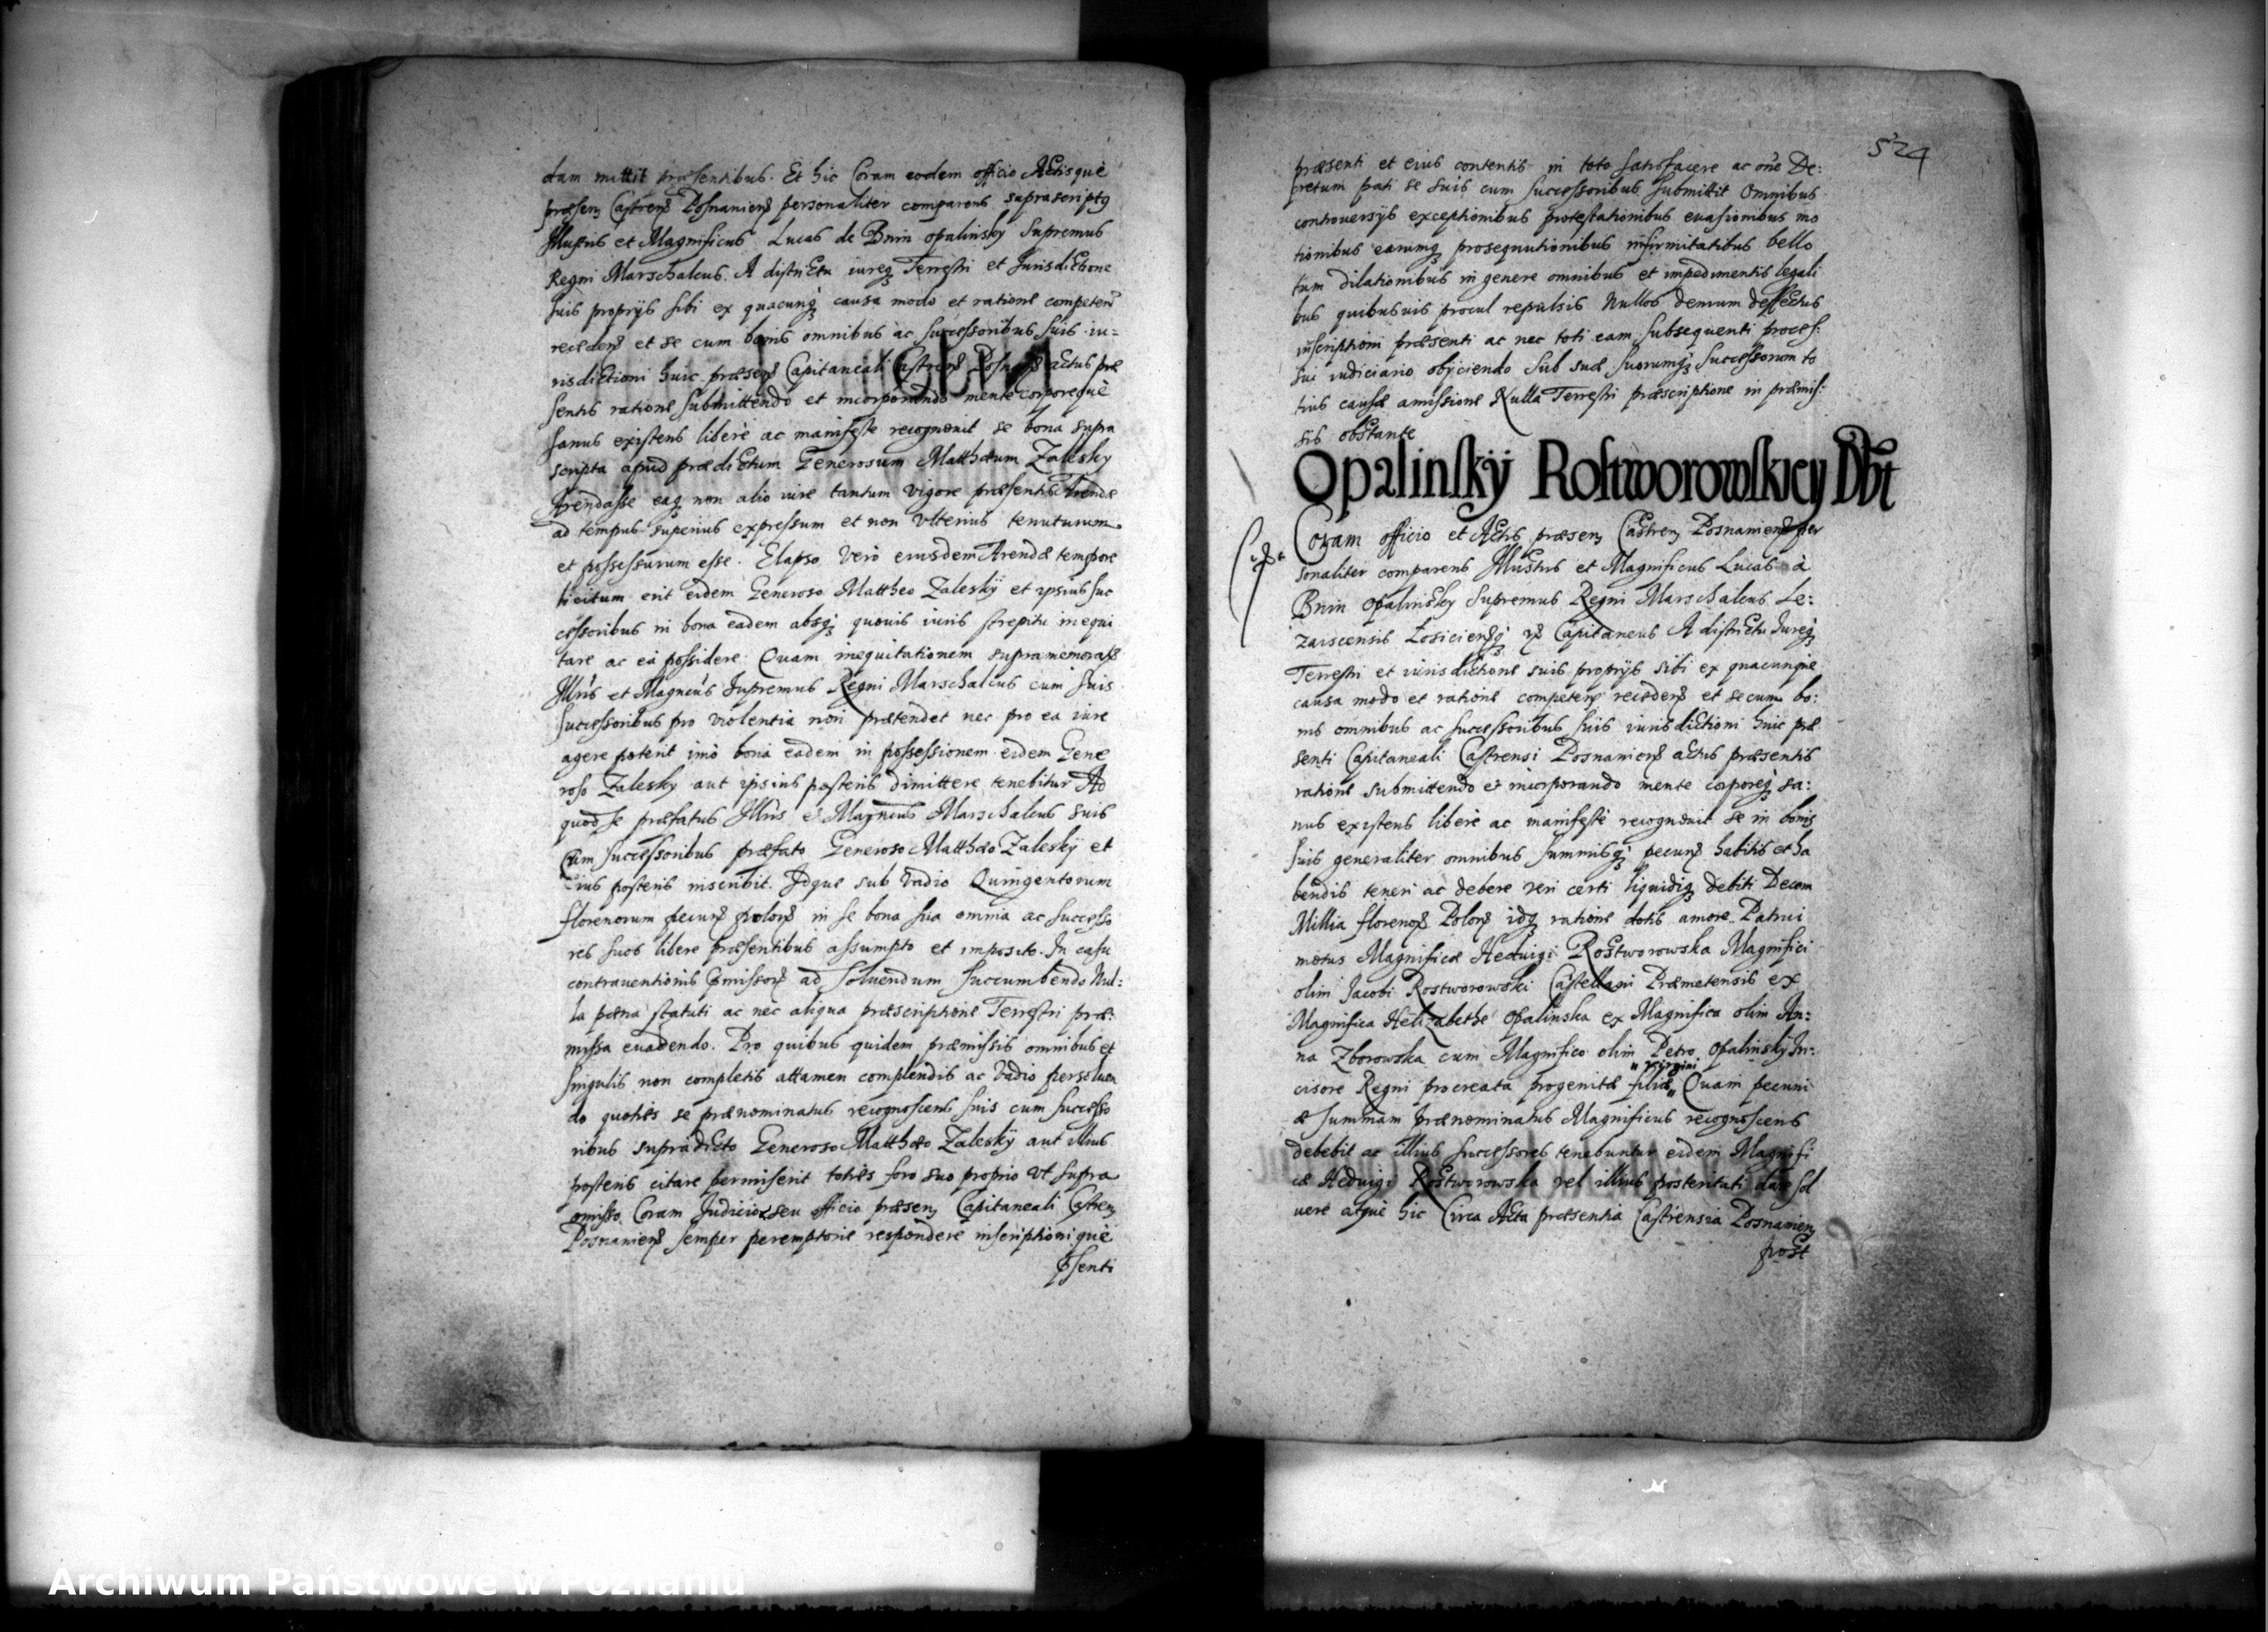 dam mittit præsentibus. Et hic Coram eodem officio Actisquè
præsen Castren Posnanien personaliter comparens suprascriptus
Illustris et Magnificus Lucas de Bnin opalinsky Supremus
Regni Marschalcus. A districtu iureq Terrestri et Jurisdictione
suis proprijs sibi ex quacunq causa modo et ratione competen
receden et se cum bonis omnibus ac successoribus suis iu=
risdictioni huic præsen Capitaneali Castren Posnan actus præ
sentis ratione submittendo et incorporando mente corporequè
sanus existens liberè ac manifeste recognouit se bona supra
scripta apud prædictum Generosum Matthæum Zalesky
Arendasse eaq non alio iure tantum vigore præsentis Arendæ
ad tempus superius expressum et non vlterius tenuturum
et possessurum esse. Elapso verò eiusdem Arendæ tempore
licitum erit eidem Generoso Mattheo Zaleskÿ et ipsius suc
cessoribus in bona eadem absq quouis iuris strepitu inequi
tare ac ea possidere. Quam inequitationem supramemorat
Illris et Magncus Supremus Regni Marschalcus cum suis
successoribus pro violentia non prætendet nec pro ea iure
agere poterit imò bona eadem in possessionem eidem Gene
roso Zalesky aut ipsius posteris dimittere tenebitur Ad
quod se præfatus Illris et Magncus Marschalcus suis
Cum successoribus præfato Generoso Matthæo Zalesky et
eius posteris inscribit. Idque sub vadio Quingentorum
florenorum pecun polon in se bona sua omnia ac successo
res suos libere præsentibus assumpto et imposito. In casu
contrauentionis Comissor ad soluendum succumbendo Nul:
la pæna statuti ac nèc aliqua præscriptione Terrestri præ:
missa euadendo. Pro quibus quidem præmissis omnibus et
singulis non completis attamen complendis ac vadio persoluen
do quoties se prænominatus recognoscens suis cum successo
ribus supradicto Generoso Matthæo Zaleskÿ aut illius
posteris citare permiserit toties foro suo proprio vt supra
omisso Coram Judicio seu officio præsen Capitaneali Castren
Posnanien semper peremptorie respondere inscriptioniquè
psenti
524
præsenti et eius contentis in toto satisfacere ac one De:
cretum pati se suis cum successoribus submittit Omnibus
controuersijs exceptionibus protestationibus euasionibus mo
tionibus earumq prosequutionibus infirmitatibus bello
rum dilationibus in genere omnibus et impedimentis legali
bus quibusuis procul repulsis Nullos demum deffectus
inscriptioni præsenti ac nec toti eam subsequenti proces:
sui iudiciario obijciendo Sub suæ suorumq Successorum to
tius causæ amissione Nulla Terrestri præscriptione in præmis:
sis obstante
Opalinskÿ Rostworowskiey Dbt
Coram officio et Actis præsen Castren Posnanien per
sonaliter comparens Illustris et Magnificus Lucas à
Bnin Opalinsky Supremus Regni Marschalcus Le:
zaiscensis Łosiciensq Capitaneus A districtu Jureq
Terrestri et iurisdictione suis proprijs sibi ex quacunque
causa modo et ratione competen receden et se cum bo:
nis omnibus ac successoribus suis iurisdictioni huic præ
senti Capitaneali Castrensi Posnanien actus præsentis
ratione submittendo et incorporando mente corporeq sa:
nus existens liberè ac manifestè recognouit se in bonis
suis generaliter omnibus summisq pecun habitis et ha
bendis teneri ac debere veri certi liquidiq debiti Decem
Millia florenor Polon idq ratione dotis amore Patrui
motus Magnificæ Heduigi Rostworowska Magnifici
olim Jacobi Rostworowski Castellani Præmetensis ex
Magnifica Helizabethe Opalinska ex Magnifica olim An:
na Zborowska cum Magnifico olim Petro Opalinskÿ In:
cisore Regni procreata progenitæ filiæ " virgini " Quam pecuni
æ summam prænominatus Magnificus recognoscens
debebit ac illius successores tenebuntur eidem Magnifi
cæ Heduigi Rostworowska vel illius posteritati dare sol
uere atquè hic Circa Acta præsentia Castrensia Posnanien
post
Archiwum Państwowe w Poznaniu